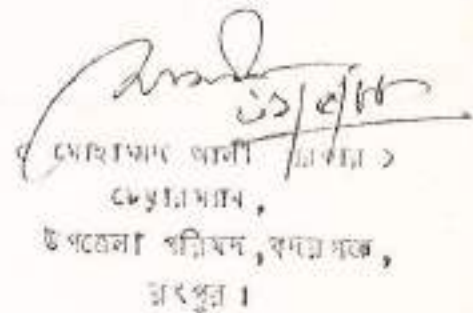 ৩১/৫/৮৮
( মোহাম্মদ আলী সরকার )
চেয়ারম্যান,
উপজেলা পরিষদ, বদরগঞ্জ,
রংপুর।